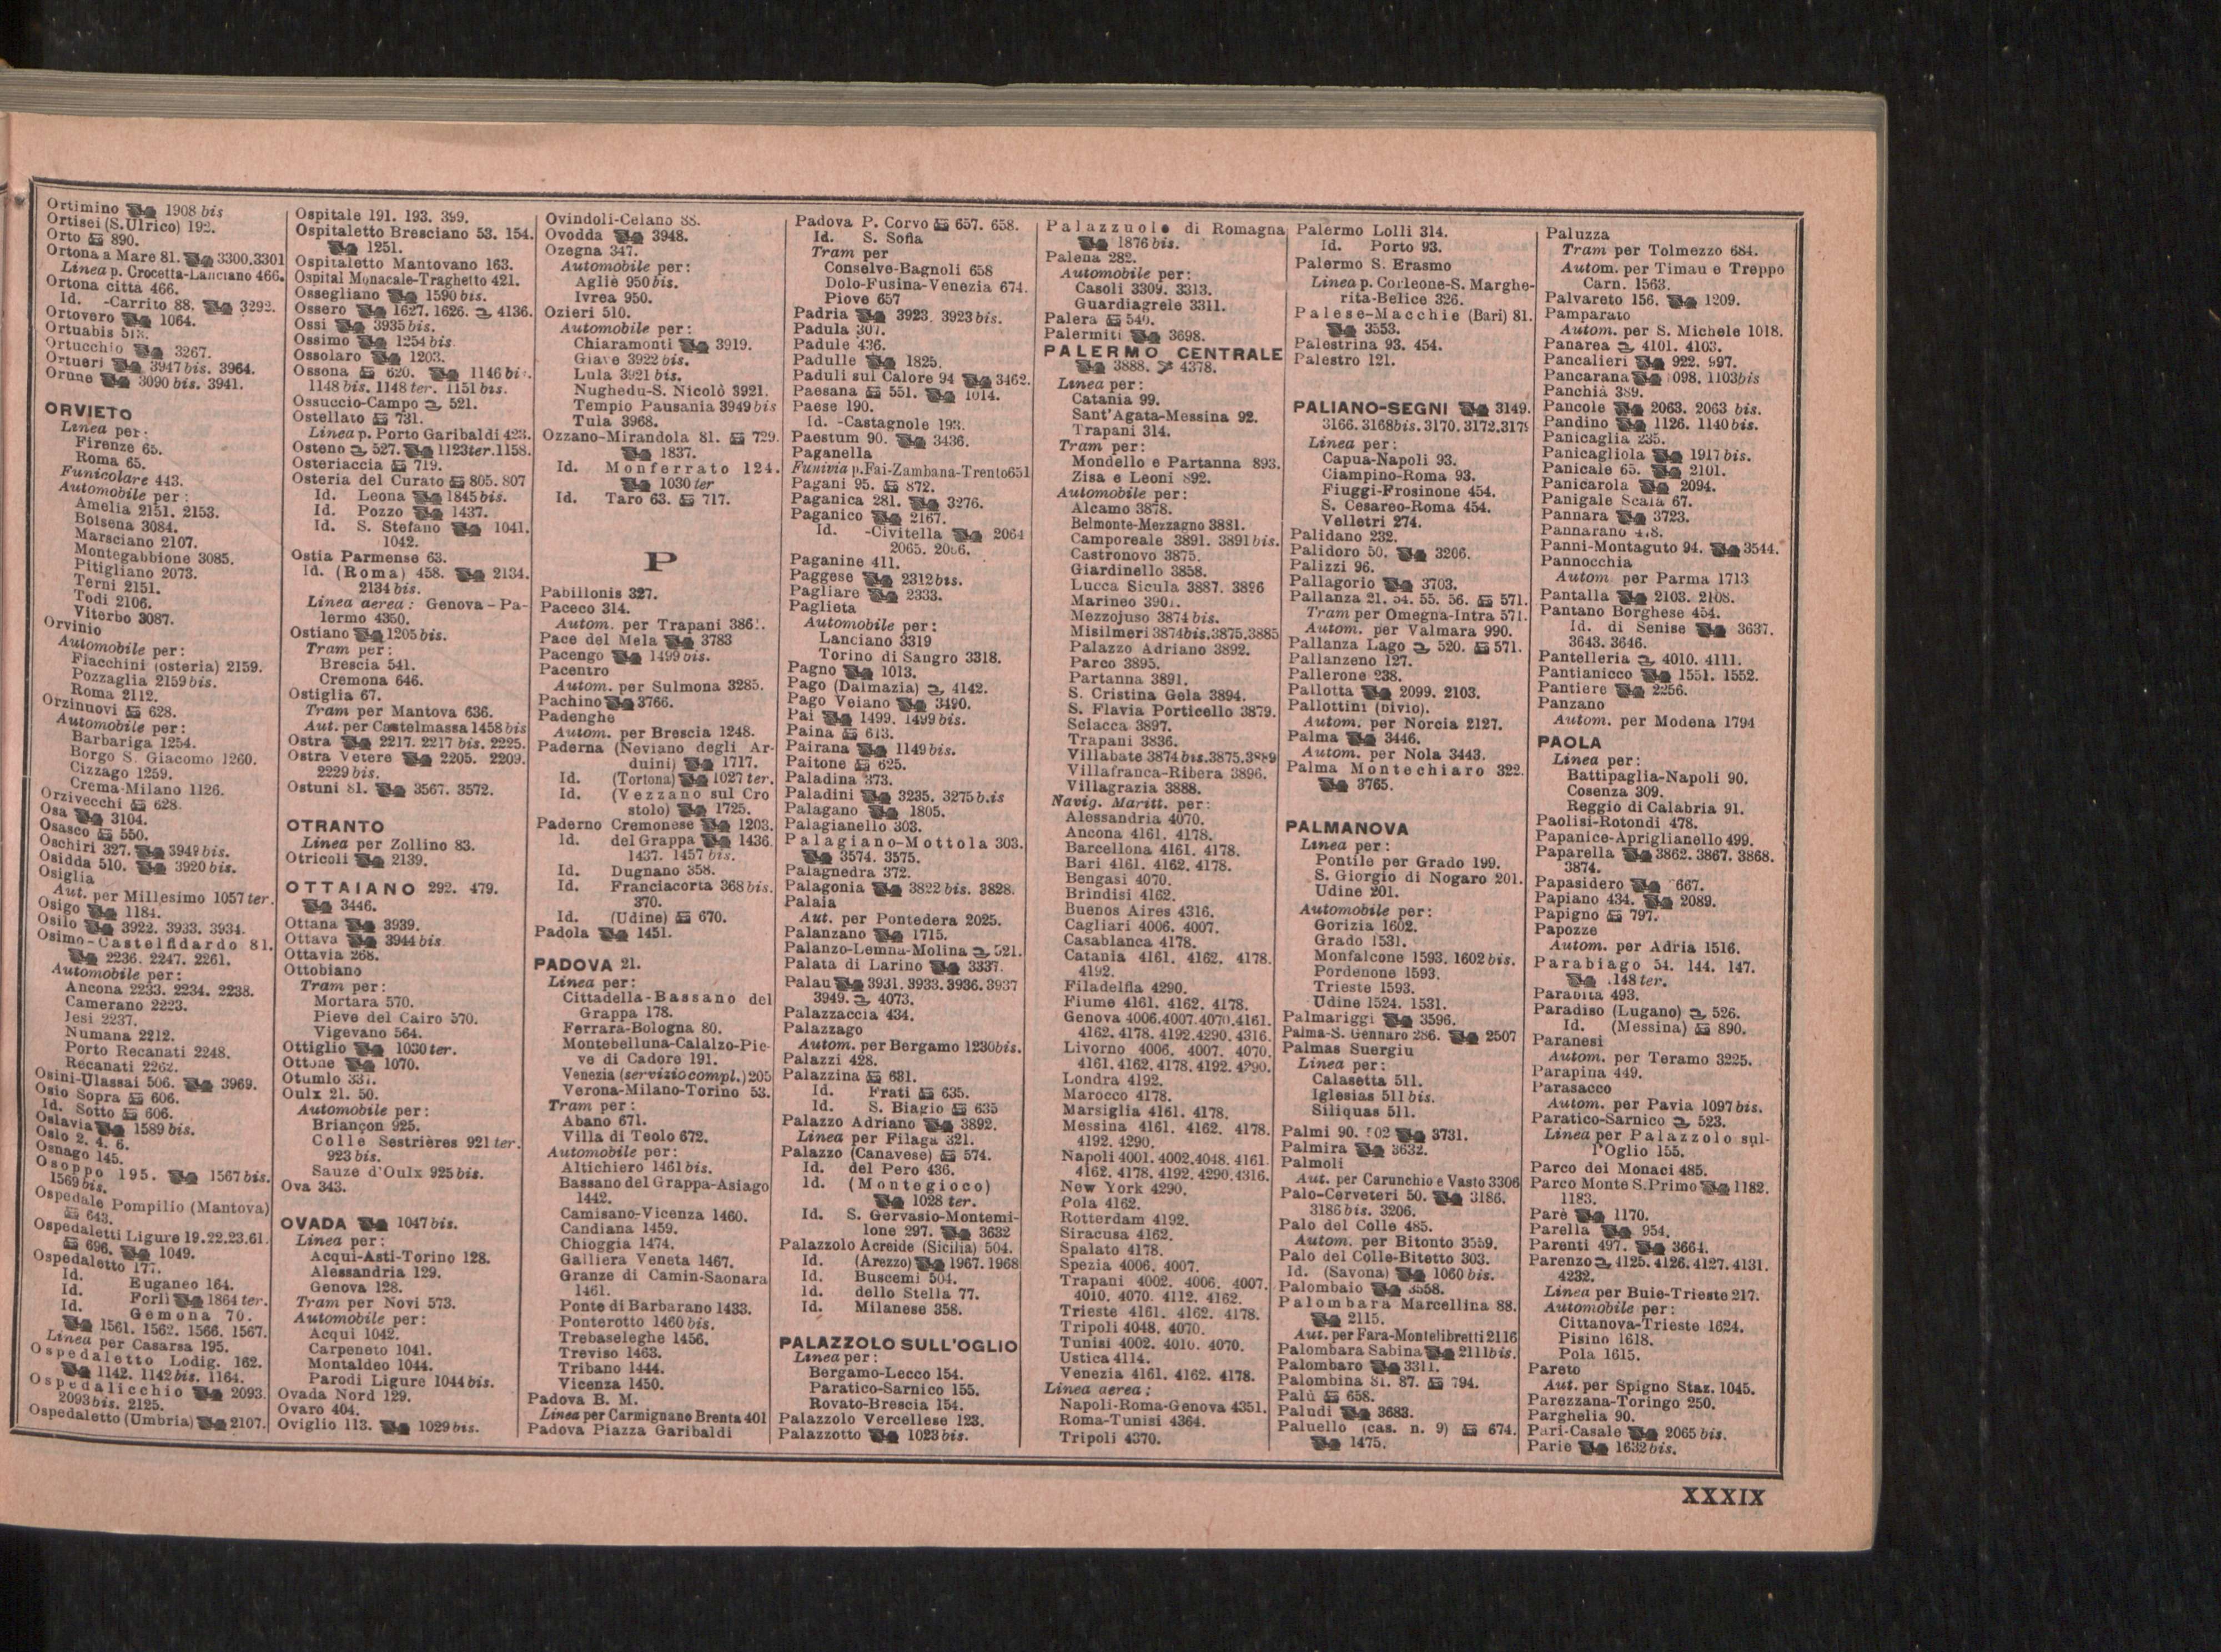 Ortimino 1908 bis
Ortisei (S. Ulrico) 192.
Orto 890.
Ortona a Mare 81. 3300.3301
Linea p. Crocetta-Lanciano 466.
Ortona città 466.
Id. -Carrito 88. 3292.
Ortovero 1064.
Ortuabis
Ortucchio 3267.
Ortueri 3947 bis. 3964.
Orune 3090 bis. 3941.
ORVIETO
Linea per:
Firenze 65.
Roma 65.
Funicolare 443.
Automobile per:
Amelia 2151. 2153.
Bolsena 3084.
Marsciano 2107.
Montegabbione 3085.
Pitigliano 2073.
Terni 2151.
Todi 2106.
Viterbo 3087.
Orvinio
Automobile per:
Fiacchini (osteria) 2159.
Pozzaglia 2159 bis.
Roma 2112.
Orzinuovi 628.
Automobile per:
Barbariga 1254.
Borgo S. Giacomo 1260.
Cizzago 1259.
Crema-Milano 1126.
Orzivecchi 628.
Osa 3104.
Osasco 550.
Oschiri 327. 3949 bis.
Osidda 510. 3920 bis.
Osiglia
Aut. per Millesimo 1057 ter.
Osigo 1184.
Osilo 3922. 3933. 3934.
Osimo-Castelfidardo 81.
2236. 2247. 2261.
Automobile per:
Ancona 2233. 2234. 2238.
Camerano 2223.
Jesi 2237.
Numana 2212.
Porto Recanati 2248.
Recanati 2262.
Osini-Ulassai 506. 3969.
Osio Sopra 606.
Id. Sotto 606.
Oslavia 1589 bis.
Oslo 2. 4. 6.
Osnago 145.
Osoppo 195. 1567 bis.
1569 bis.
Ospedale Pompilio (Mantova)
643.
Ospedaletti Ligure 19.22.23.61.
696. 1049.
Ospedaletto 177.
Id. Euganeo 164.
Id. Forlì 1864 ter.
Id. Gemona 70.
1561. 1562. 1566. 1567.
Linea per Casarsa 195.
Ospedaletto Lodig. 162.
1142. 1142 bis. 1164.
Ospedalicchio 2093.
2093 bis. 2125.
Ospedaletto (Umbria) 2107.
Ospitale 191. 193. 399.
Ospitaletto Bresciano 53. 154.
1251.
Ospitaletto Mantovano 163.
Ospital Monacale-Traghetto 421.
Ossegliano 1590 bis.
Ossero 1627. 1626. 4136.
Ossi 3935 bis.
Ossimo 1254 bis
Ossolaro 1203.
Ossona 620. 1146
1148 bis. 1148 ter. 1151 bis.
Ossuccio-Campo 521.
Ostellato 731.
Linea p. Porto Garibaldi 423.
Osteno 527. 1123 ter. 1158.
Osteriaccia 719.
Osteria del Curato 805. 807
Id. Leona 1845 bis.
Id. Pozzo 1437.
Id. S. Stefano 1041.
1042.
Ostia Parmense 63.
Id. (Roma) 458. 2134.
2134 bis.
Linea aerea: Genova-Pa-
lermo 4350.
Ostiano 1205 bis.
Tram per:
Brescia 541.
Cremona 646.
Ostiglia 67.
Tram per Mantova 636.
Aut. per Castelmassa 1458 bis
Ostra 2217. 2217 bis. 2225.
Ostra Vetere 2205. 2209.
2229 bis.
Ostuni 81. 3567. 3572.
OTRANTO
Linea per Zollino 83.
Otricoli 2139.
OTTAIANO 292. 479.
3446.
Ottana 3939.
Ottava 3944 bis
Ottavia 268.
Ottobiano
Tram per:
Mortara 570.
Pieve del Cairo 570.
Vigevano 564.
Ottiglio 1030 ter.
Ottone 1070.
Otumlo 337.
Oulx 21. 50.
Automobile per:
Briançon 925.
Colle Sestrières 921 ter.
923 bis.
Sauze d'Oulx 925 bis.
Ova 343.
OVADA 1047 bis.
Linea per:
Acqui-Asti-Torino 128.
Alessandria 129.
Genova 128.
Tram per Novi 573.
Automobile per:
Acqui 1042.
Carpeneto 1041.
Montaldeo 1044.
Parodi Ligure 1044 bis.
Ovada Nord 129.
Ovaro 404.
Oviglio 113. 1029 bis.
Ovindoli-Celano 88.
Ovodda 3948.
Ozegna 347.
Automobile per:
Agliè 950 bis.
Ivrea 950.
Ozieri 510.
Automobile per:
Chiaramonti 3919.
Giave 3922 bis.
Lula 3921 bis.
Nughedu-S. Nicolò 3921.
Tempio Pausania 3949 bis
Tula 3968.
Ozzano-Mirandola 81. 729.
1837.
Id. Monferrato 124.
1030 ter
Id. Taro 63. 717.
P
Pabillonis 327.
Paceco 314.
Autom. per Trapani
Pace del Mela 3783
Pacengo 1499 bis.
Pacentro
Autom. per Sulmona 3285.
Pachino 3766.
Padenghe
Autom. per Brescia 1248.
Paderna (Neviano degli Ar-
duini) 1717.
Id. (Tortona) 1027 ter.
Id. (Vezzano sul Cro
stolo) 1725.
Paderno Cremonese 1203.
Id. del Grappa 1436.
1437. 1457 bis.
Id. Dugnano 358.
Id. Franciacorta 368 bis.
370.
Id. (Udine) 670.
Padola 1451.
PADOVA 21.
Linea per:
Cittadella-Bassano del
Grappa 178.
Ferrara-Bologna 80.
Montebelluna-Calalzo-Pie-
ve di Cadore 191.
Venezia (servizio compl.) 205
Verona-Milano-Torino 53.
Tram per:
Abano 671.
Villa di Teolo 672.
Automobile per:
Altichiero 1461 bis.
Bassano del Grappa-Asiago
1442.
Camisano-Vicenza 1460.
Candiana 1459.
Chioggia 1474.
Galliera Veneta 1467.
Granze di Camin-Saonara
1461.
Ponte di Barbarano 1433.
Ponterotto 1460 bis.
Trebaseleghe 1456.
Treviso 1463.
Tribano 1444.
Vicenza 1450.
Padova B. M.
Linea per Carmignano Brenta 401
Padova Piazza Garibaldi
Padova P. Corvo 657. 658.
Id. S. Sofia
Tram per
Conselve-Bagnoli 658
Dolo-Fusina-Venezia 674.
Piove 657
Padria 3923. 3923 bis.
Padula 307.
Padule 436.
Padulle 1825.
Paduli sul Calore 94 3462.
Paesana 551. 1014.
Paese 190.
Id. -Castagnole 193.
Paestum 90. 3436.
Paganella
Funivia p. Fai-Zambana-Trento 651
Pagani 95. 872.
Paganica 281. 3276.
Paganico 2167.
Id. -Civitella 2064
2065. 2066.
Paganine 411.
Paggese 2312 bis.
Pagliare 2333.
Paglieta
Automobile per:
Lanciano 3319
Torino di Sangro 3318.
Pagno 1013.
Pago (Dalmazia) 4142.
Pago Veiano 3490.
Pai 1499. 1499 bis.
Paina 613.
Pairana 1149 bis.
Paitone 625.
Paladina 373.
Paladini 3235. 3275 b.is
Palagano 1805.
Palagianello 303.
Palagiano-Mottola 303.
3574. 3575.
Palagnedra 372.
Palagonia 3822 bis. 3828.
Palaia
Aut. per Pontedera 2025.
Palanzano 1715.
Palanzo-Lemna-Molina 521.
Palata di Larino 3337.
Palau 3931. 3933. 3936. 3937
3949. 4073.
Palazzaccia 434.
Palazzago
Autom. per Bergamo 1230 bis.
Palazzi 428.
Palazzina 631.
Id. Frati 635.
Id. S. Biagio 635
Palazzo Adriano 3892.
Linea per Filaga 321.
Palazzo (Canavese) 574.
Id. del Pero 436.
Id. (Montegioco)
1028 ter.
Id. S. Gervasio-Montemi-
lone 297. 3632
Palazzolo Acreide (Sicilia) 504.
Id. (Arezzo) 1967. 1968
Id. Buscemi 504.
Id. dello Stella 77.
Id. Milanese 358.
PALAZZOLO SULL'OGLIO
Linea per:
Bergamo-Lecco 154.
Paratico-Sarnico 155.
Rovato-Brescia 154.
Palazzolo Vercellese 123.
Palazzotto 1023 bis.
Palazzuolo di Romagna
1876 bis.
Palena 282.
Automobile per:
Casoli 3309. 3313.
Guardiagrele 3311.
Palera 549.
Palermiti 3698.
PALERMO CENTRALE
3888. 4378.
Linea per:
Catania 99.
Sant'Agata-Messina 92.
Trapani 314.
Tram per:
Mondello e Partanna 893.
Zisa e Leoni 892.
Automobile per:
Alcamo 3878.
Belmonte-Mezzagno 3881.
Camporeale 3891. 3891 bis.
Castronovo 3875.
Giardinello 3858.
Lucca Sicula 3887. 3896
Marineo
Mezzojuso 3874 bis.
Misilmeri 3874 bis. 3875. 3885
Palazzo Adriano 3892.
Parco 3895.
Partanna 3891.
S. Cristina Gela 3894.
S. Flavia Porticello 3879.
Sciacca 3897.
Trapani 3836.
Villabate 3874 bis. 3875. 3889
Villafranca-Ribera 3896.
Villagrazia 3888.
Navig. Maritt. per:
Alessandria 4070.
Ancona 4161. 4178.
Barcellona 4161. 4178.
Bari 4161. 4162. 4178.
Bengasi 4070.
Brindisi 4162.
Buenos Aires 4316.
Cagliari 4006. 4007.
Casablanca 4178.
Catania 4161. 4162. 4178.
4192.
Filadelfia 4290.
Fiume 4161. 4162. 4178.
Genova 4006. 4007. 4070. 4161.
4162. 4178. 4192. 4290. 4316.
Livorno 4006. 4007. 4070.
4161. 4162. 4178. 4192. 4290.
Londra 4192.
Marocco 4178.
Marsiglia 4161. 4178.
Messina 4161. 4162. 4178.
4192. 4290.
Napoli 4001. 4002. 4048. 4161.
4162. 4178. 4192. 4290. 4316.
New York 4290.
Pola 4162.
Rotterdam 4192.
Siracusa 4162.
Spalato 4178.
Spezia 4006. 4007.
Trapani 4002. 4006. 4007.
4010. 4070. 4112. 4162.
Trieste 4161. 4162. 4178.
Tripoli 4048. 4070.
Tunisi 4002. 4010. 4070.
Ustica 4114.
Venezia 4161. 4162. 4178.
Linea aerea:
Napoli-Roma-Genova 4351.
Roma-Tunisi 4364.
Tripoli 4370.
Palermo Lolli 314.
Id. Porto 93.
Palermo S. Erasmo
Linea p. Corleone-S. Marghe-
rita-Belice 326.
Palese-Macchie (Bari) 81.
3553.
Palestrina 93. 454.
Palestro 121.
PALIANO-SEGNI 3149.
3166. 3168 bis. 3170. 3172. 3179
Linea per:
Capua-Napoli 93.
Ciampino-Roma 93.
Fiuggi-Frosinone 454.
S. Cesareo-Roma 454.
Velletri 274.
Palidano 232.
Palidoro 50. 3206.
Palizzi 96.
Pallagorio 3703.
Pallanza 21. 54. 55. 56. 571.
Tram per Omegna-Intra 571.
Autom. per Valmara 990.
Pallanza Lago 520. 571.
Pallanzeno 127.
Pallerone 238.
Pallotta 2099. 2103.
Pallottini (bivio).
Autom. per Norcia 2127.
Palma 3446.
Autom. per Nola 3443.
Palma Montechiaro 322.
3765.
PALMANOVA
Linea per:
Pontile per Grado 199.
S. Giorgio di Nogaro 201.
Udine 201.
Automobile per:
Gorizia 1602.
Grado 1531.
Monfalcone 1593. 1602 bis.
Pordenone 1593.
Trieste 1593.
Udine 1524. 1531.
Palmariggi 3596.
Palma-S. Gennaro 286. 2507
Palmas Suergiu
Linea per:
Calasetta 511.
Iglesias 511 bis.
Siliquas 511.
Palmi 90. 3731.
Palmira 3632.
Palmoli
Aut. per Carunchio e Vasto 3306
Palo-Cerveteri 50. 3186.
3186 bis. 3206.
Palo del Colle 485.
Autom. per Bitonto 3559.
Palo del Colle-Bitetto 303.
Id. (Savona) 1060 bis.
Palombaio 3558.
Palombara Marcellina 88.
2115.
Aut. per Fara-Montelibretti 2116
Palombara Sabina 2111 bis.
Palombaro 3311.
Palombina 81. 87. 794.
Palù 658.
Paludi 3683.
Paluello (cas. n. 9) 674.
1475.
Paluzza
Tram per Tolmezzo 684.
Autom. per Timau e Treppo
Carn. 1563.
Palvareto 156. 1209.
Pamparato
Autom. per S. Michele 1018.
Panarea 4101. 4103.
Pancalieri 922. 997.
Pancarana 1098. 1103 bis
Panchià 389.
Pancole 2063. 2063 bis.
Pandino 1126. 1140 bis.
Panicaglia 235.
Panicagliola 1917 bis.
Panicale 65. 2101.
Panicarola 2094.
Panigale Scala 67.
Pannara 3723.
Pannarano
Panni-Montaguto 94. 3544.
Pannocchia
Autom. per Parma 1713
Pantalla 2103. 2108.
Pantano Borghese 454.
Id. di Senise 3637.
3643. 3646.
Pantelleria 4010. 4111.
Pantianicco 1551. 1552.
Pantiere 2256.
Panzano
Autom. per Modena 1794
PAOLA
Linea per:
Battipaglia-Napoli 90.
Cosenza 309.
Reggio di Calabria 91.
Paolisi-Rotondi 478.
Papanice-Apriglianello 499.
Paparella 3862. 3867. 3868.
3874.
Papasidero
Papiano 434. 2089.
Papigno 797.
Papozze
Autom. per Adria 1516.
Parabiago 54. 144. 147.
Parabita 493.
Paradiso (Lugano) 526.
Id. (Messina) 890.
Paranesi
Autom. per Teramo 3225.
Parapina 449.
Parasacco
Autom. per Pavia 1097 bis.
Paratico-Sarnico 523.
Linea per Palazzolo sul-
l'Oglio 155.
Parco dei Monaci 485.
Parco Monte S. Primo 1182.
1183.
Parè 1170.
Parella 954.
Parenti 497. 3664.
Parenzo 4125. 4126. 4127. 4131.
4232.
Linea per Buie-Trieste 217.
Automobile per:
Cittanova-Trieste 1624.
Pisino 1618.
Pola 1615.
Pareto
Aut. per Spigno Staz. 1045.
Parezzana-Toringo 250.
Parghelia 90.
Pari-Casale 2065 bis.
Parie 1632 bis.
XXXIX